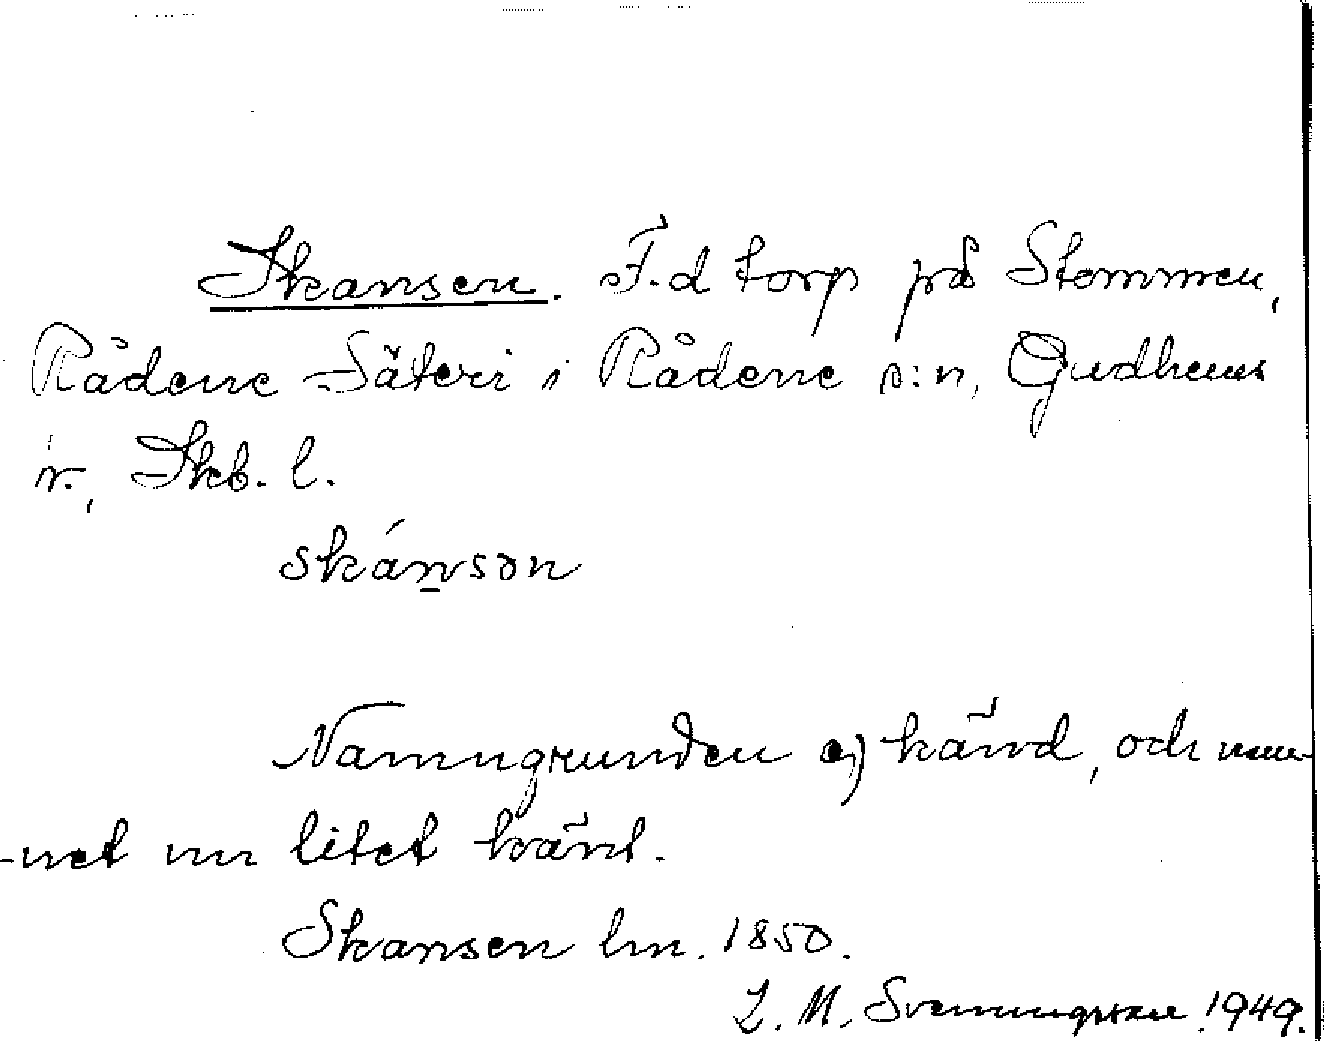 Skansen. F.d torp på Stommen,
Rådene Säteri i Rådene s:n, Gudhems
v., Skb. l.
skánsən
Namngrunden ej känd, och nam-
-net nu litet känt.
Skansen lm. 1850.
L. M. Svenungsson 1949.